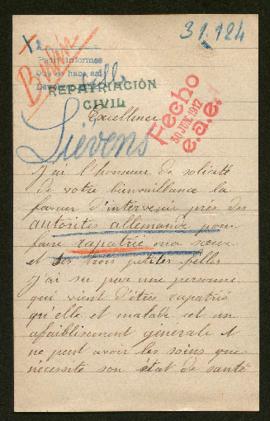 31.124
Pedir informes
REPATRIACIÓN
CIVIL
Fecho
30 JUN 1917
e.a.e.
Excellence
Lievens
J'ai l'honneur de solicité
de votre bienveillance la
faveur d'intervenir près des
autorités allemande pour
faire rapatrié ma sœur
et ses trois petites filles
J'ai su par une personne
qui vient d'êtres rapatrié
qu'elle et malade et un
afaiblisement générale et
ne peut avoir les soins que
nécessite son état de santé